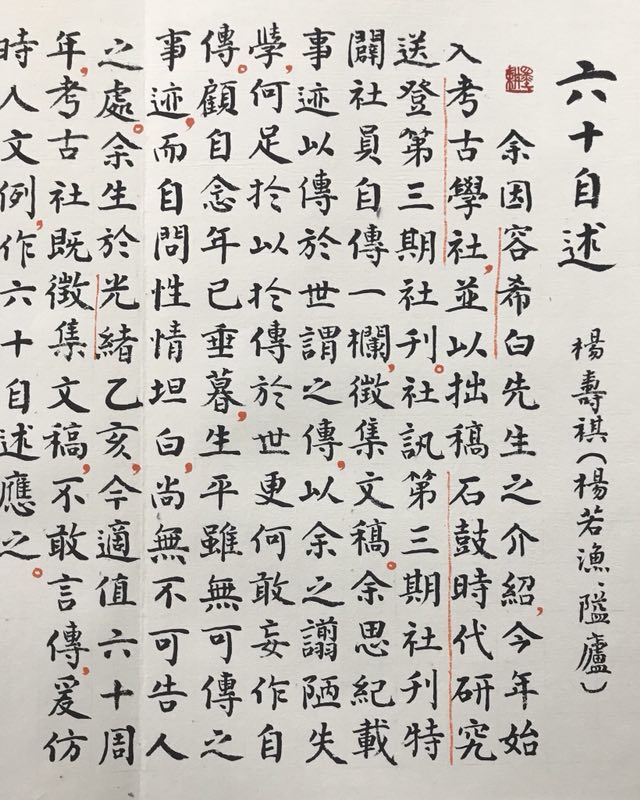 六十自述
楊壽祺(楊若漁、隘廬)
余因容希白先生之介紹,今年始
入考古學社,並以拙稿石鼓時代研究
送登第三期社刊。社訊第三期社刊特
闢社員自傳一欄,徵集文稿。余思紀載
事迹以傳於世謂之傳,以余之謭陋失
學,何足扵以扵傳於世更何敢妄作自
傳。顧自念年已垂暮,生平雖無可傳之
事迹,而自問性情坦白,尚無不可告人
之處。余生於光緒乙亥,今適值六十周
年,考古社既徵集文稿,不敢言傳,爰仿
時人文例,作六十自述應之。